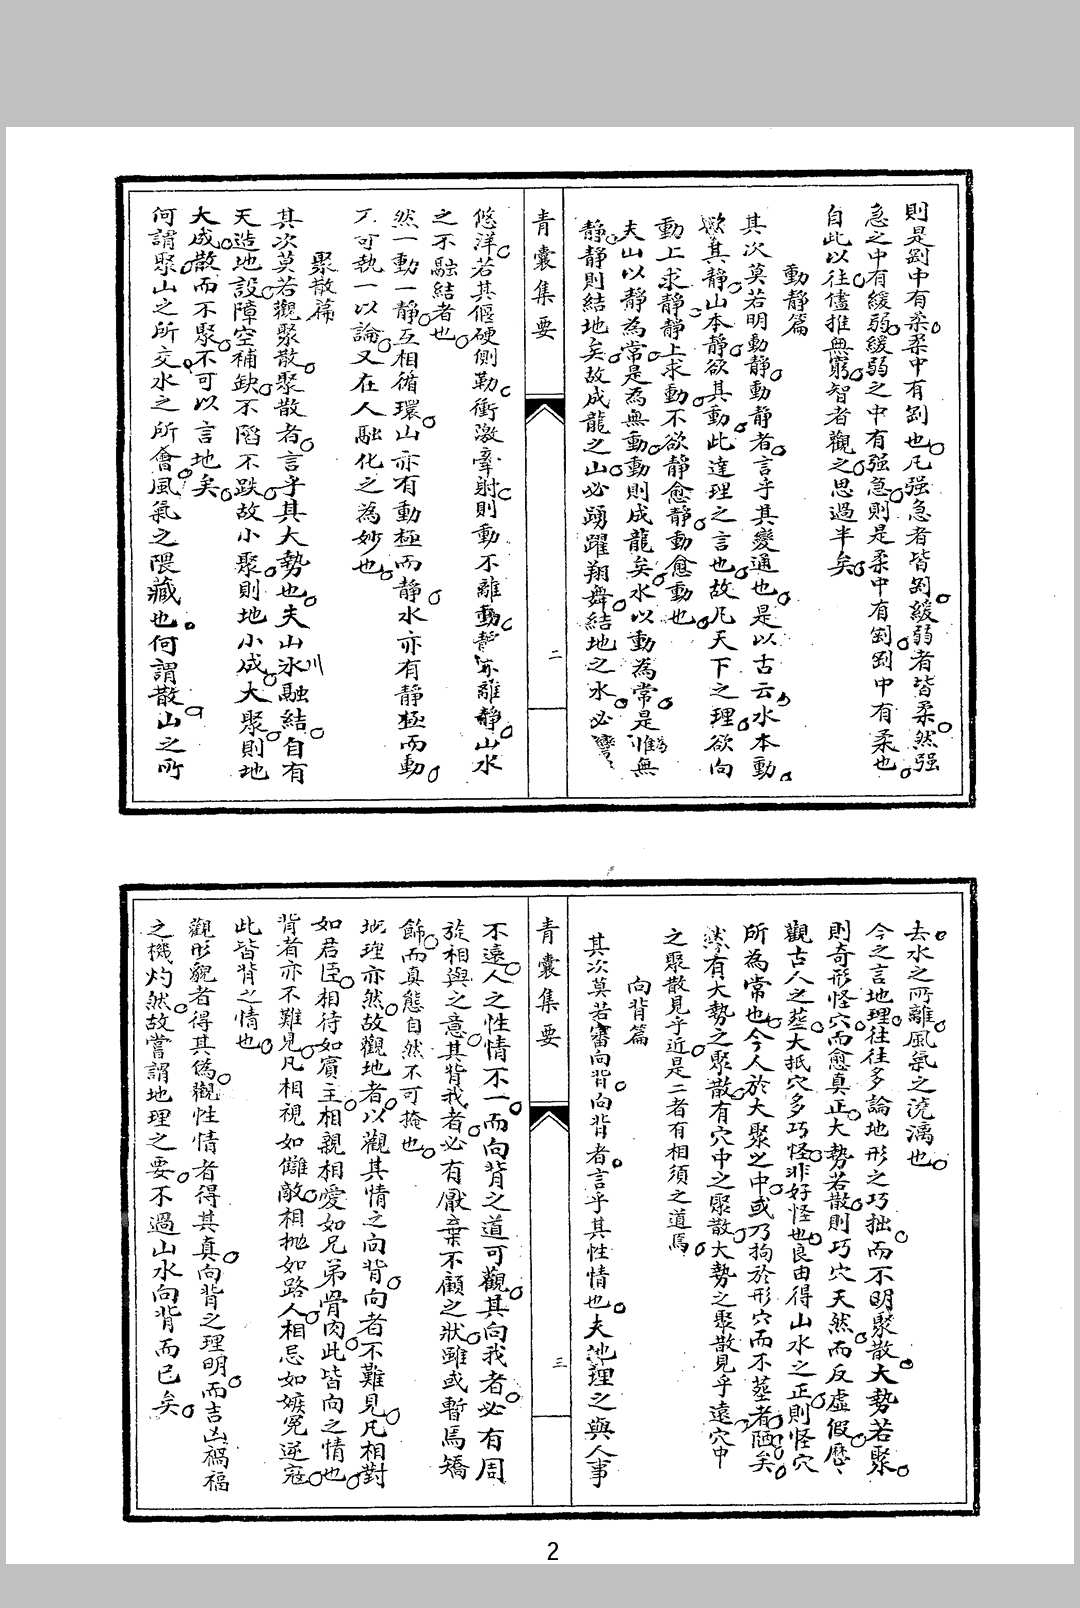 則是剛中有柔柔中有剛也凡强急者皆剛緩弱者皆柔然强
急之中有緩弱緩弱之中有强急則是柔中有剛剛中有柔也
自此以往儘推無窮智者觀之思過半矣
動靜篇
其次莫若明動靜動靜者言乎其變通也是以古云水本動
欲其靜山本靜欲其動此達理之言也故凡天下之理欲向
動上求靜靜上求動不欲靜愈靜動愈動也
夫山以靜為常是為無動動則成龍矣水以動為常是為無
靜靜則結地矣故成龍之山必踴躍翔舞結地之水必灣
青囊集要
二
悠洋若其偃硬側勒衝激牽射則動不離動靜亦離靜山水
之不融結者也
然一動一靜互相循環山亦有動極而靜水亦有靜極而動
不可執一以論又在人融化之為妙也
聚散篇
其次莫若觀聚散聚散者言乎其大勢也夫山水融結自有
川
天造地設障空補缺不陷不跌故小聚則地小成大聚則地
大成散而不聚不可以言地矣
何謂聚山之所交水之所會風氣之隈藏也何謂散山之所
去水之所離風氣之澆漓也
今之言地理往往多論地形之巧拙而不明聚散大勢若聚
則奇形怪穴而愈真正大勢若散則巧穴天然而反虛假歷
觀古人之塟大抵穴多巧怪非好怪也良由得山水之正則怪穴
所為常也今人於大聚之中或乃拘於形穴而不塟者陋矣
然有大勢之聚散有穴中之聚散大勢之聚散見乎遠穴中
之聚散見乎近是二者有相須之道焉
向背篇
其次莫若審向背向背者言乎其性情也夫地理之與人事
青囊集要
三
不遠人之性情不一而向背之道可觀其向我者必有周
旋相與之意其背我者必有厭棄不顧之狀雖或暫焉矯
飾而真態自然不可掩也
地理亦然故觀地者以觀其情之向背向者不難見凡相對
如君臣相待如賓主相親相愛如兄弟骨肉此皆向之情也
背者亦不難見凡相視如讎敵相拋如路人相忌如嫉冤逆寇
此皆背之情也
觀形貌者得其偽觀性情者得其真向背之理明而吉凶禍福
之機灼然故嘗謂地理之要不過山水向背而已矣
2